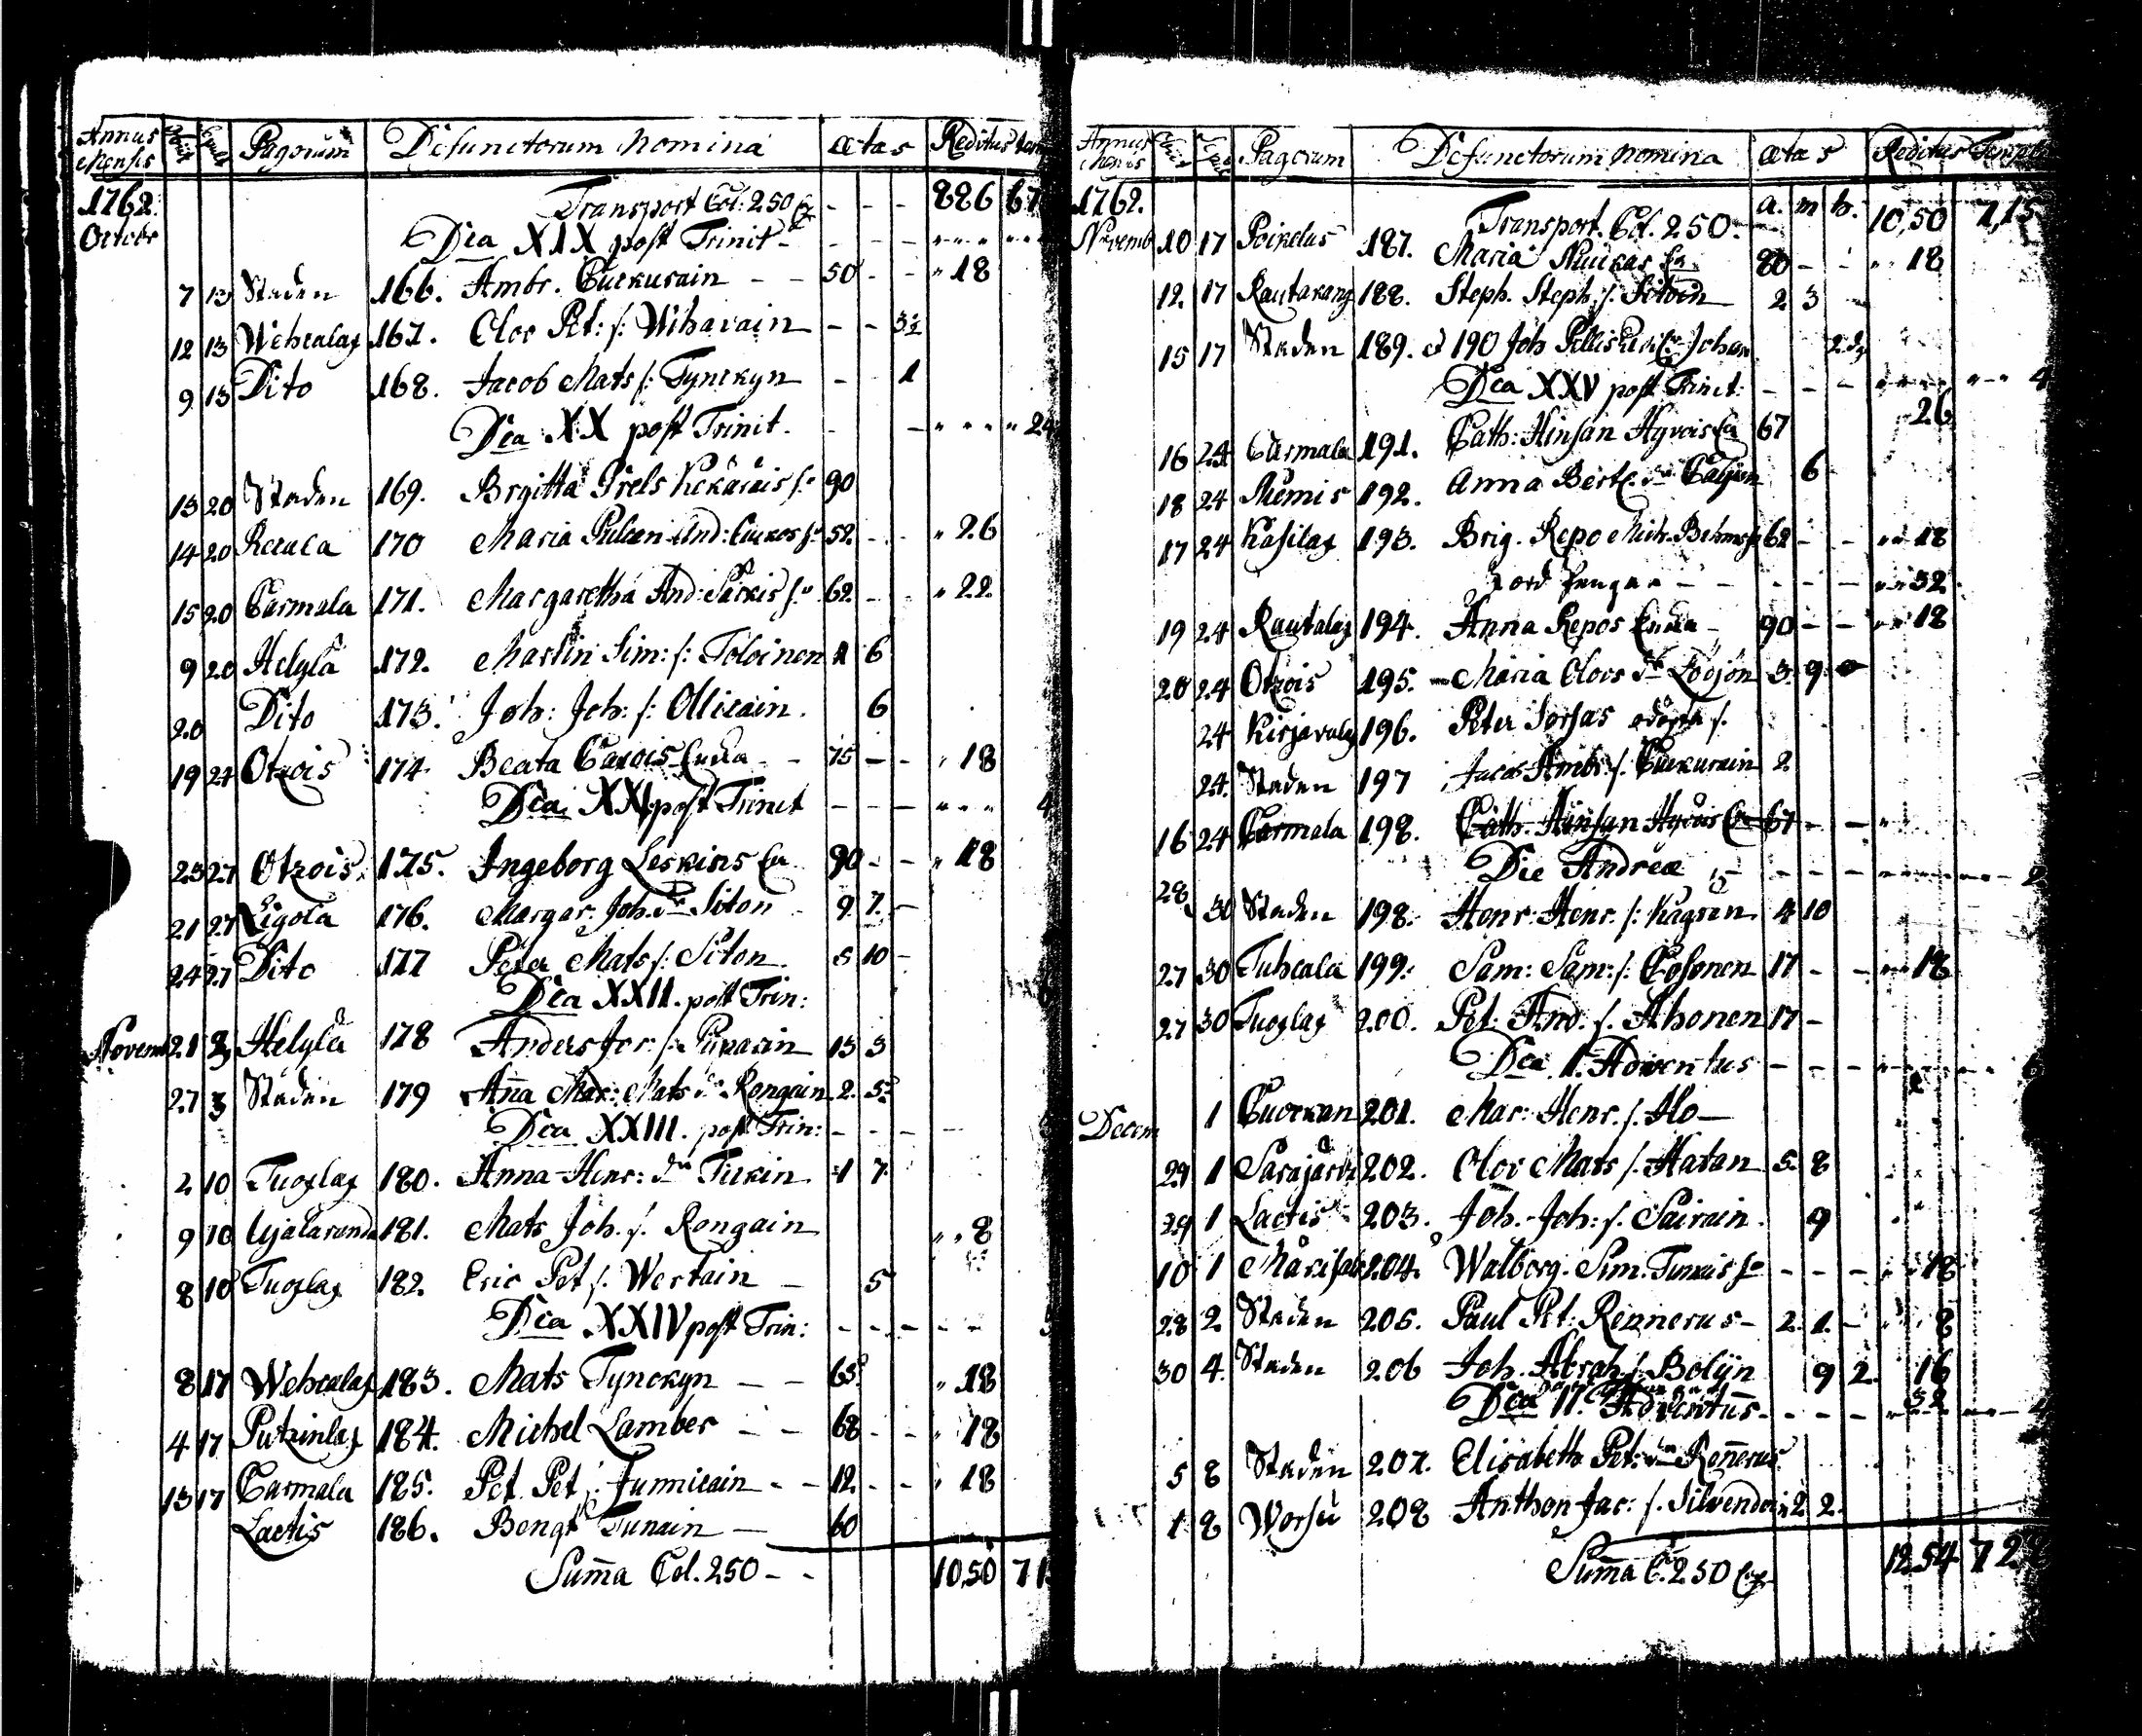 Annus Mensis Pagorum Defunctorum Nomina ætas Reditus
1762. Transport Col: 250 - - - 886 67
Octobr Dca XIX post Trinit - - - -
7 13 Staden 166. Ambr. Cuckurain - - 50 - - " 18
12 13 Wehcalax 167. Olov Pet: s: Wihavain - - 3½
9 13 Dito 168. Jacob Mats s: Tynckyn - - 1
Dca XX post Trinit. - - " " " " 24
13 20 Staden 169. Brgitta Prels Kekäläis 90
14 20 Recala 170 Maria Pulcen And: Cuckos 52. - - " 26
15 20 Carmala 171. Margaretha And: Särkis 62. - - " 22
9 20 Helylä 172. Martin Sim: s: Toloinen 1 6
20 Dito 173. Joh: Joh: s: Ollicain. 6
19 24 Otzois 174. Beata Carois Encka - - 75 - - " 18
Dca XXI post Trinit - - - " " " 4
23 27 Otzois 175. Ingeborg Leskins 90 - - " 18
21 27 Ligola 176. Margar: Joh. dr Siton - 9. 7. -
24 27 Dito 177 Peter Mats s: Siton. 5 10 -
Dca XXII. post Trin:
Novem 21 3 Helylä 178 Anders Jor: s: Pukarin 13 3
27 3 Staden 179 Aña Mar: Mats dr Rongain 2. 5
Dca XXIII. post Trin: - - - -
2 10 Tuoxlax 180. Anna Henr: dr Tickin 1 7
9 10 181. Mats Joh. s. Rongain " " 8
8 10 Tuoxlax 182. Eric Pet s. Wertain - 5
Dca XXIV post Trin: - - - - -
8 17 Wehcalax 183. Mats Tynckyn - - 63 " 18
4 17 Putzinlax 184. Michel Lamber - - 68 - - " 18
13 17 Carmala 185. Pet. Pet s: Junnicain - - 12. - - " 18
Lactis 186. Bengt Tunain - 60
Suma Col. 250 - - 10,50 71
Annus Mensis Pagorum Defunctorum nomina ætas Reditus
1762. Transport. Col. 250. - a. m h. 10,50 7,15
Novemb 10 17 Poikelus 187. Maria Nuickas 80 - - " 18
12. 17 Rautakang 188. Steph. Steph. s. 2 3
15 17 Staden 189. et 190 Joh 2 dg
Dca XXV post Trinit: - - - 4
16 24 Carmala 191. Cath: Hinsan Hyvois 67 26
18 24 Niemis 192. Anna Bertil dr 6
17 24 Kasilax 193. Brig. Repo Mich. 62 - - " 18
- - - " 32
19 24 Rautalax 194. Anna Repos Encka - 90 - - " 18
20 24 Otzois 195. Maria Olovs dr 3. 9.
24 Kirjavalax 196. Peter Sorsas
24. Staden 197 Jacob Ambr: s. Cuckurain 2.
16 24 Carmala 198. Cath. Hinsan Hyvois 67 - -
Die Andreæ - - - - 2
28. 30 Staden 198. Henr: Henr. s: Hagren 4 10
27 30 Tuhcala 199. Sam: Sam: s: Cosonen 17 - - " 18
27 30 Tuoxlax 200. Pet: And. s. Ahonen 17 -
Dca 1. Adventus - - -
Decem 1 201. Mar: Henr. s. Ilo -
29 1 Sarajärvi 202. Olov Mats s. Hatan 5. 8
29 1 Lactis 203. Joh. Joh: s. Pairain. 9
10 1 204. Walborg. Sim. - - - " 18
28 2 Staden 205. Paul Pet: Rennerus - 2. 1. - 8
30 4. Staden 206 Joh. Abrah. s. Bolijn 9 2 16
Dca II. Adventus - - - - 32
5 8 Staden 207. Elisabeth Pet: dr Reñerus
1 8 Worsu 208 Anthon Jac: s. Silvendoin 2 2.
Suma C. 250 12,54 72